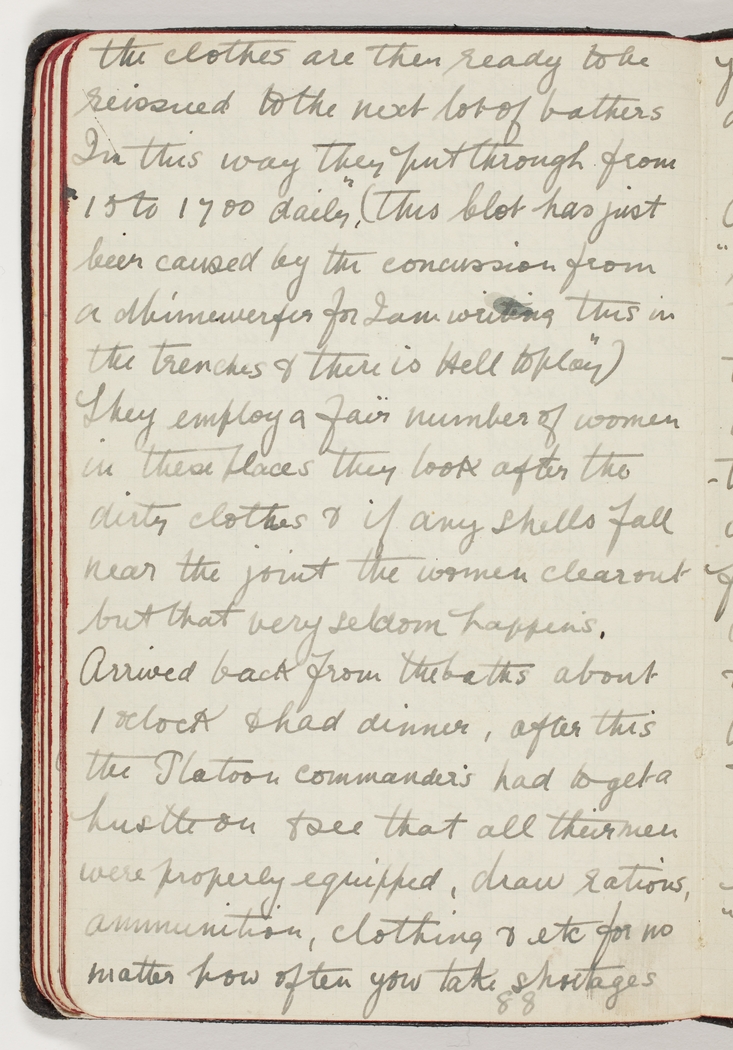 the clothes are then ready to be
reissued to the next lot of bathers
In this way they "put through from
15 to 1700 daily", (this blot has just
been caused by the concussion from
a dhimewerfer for I am writing this in
the trenches & there is Hell to play")
They employ a fair number of women
in these places they look after the
dirty clothes & if any shells fall
near the joint the women clear out
but that very seldom happens.
Arrived back from the baths about
1 oclock & had dinner, after this
the Platoon commanders had to get a
hustle on & see that all their men
were properly equipped, draw rations,
ammunition, clothing & etc for no
matter how often you take shortages
88